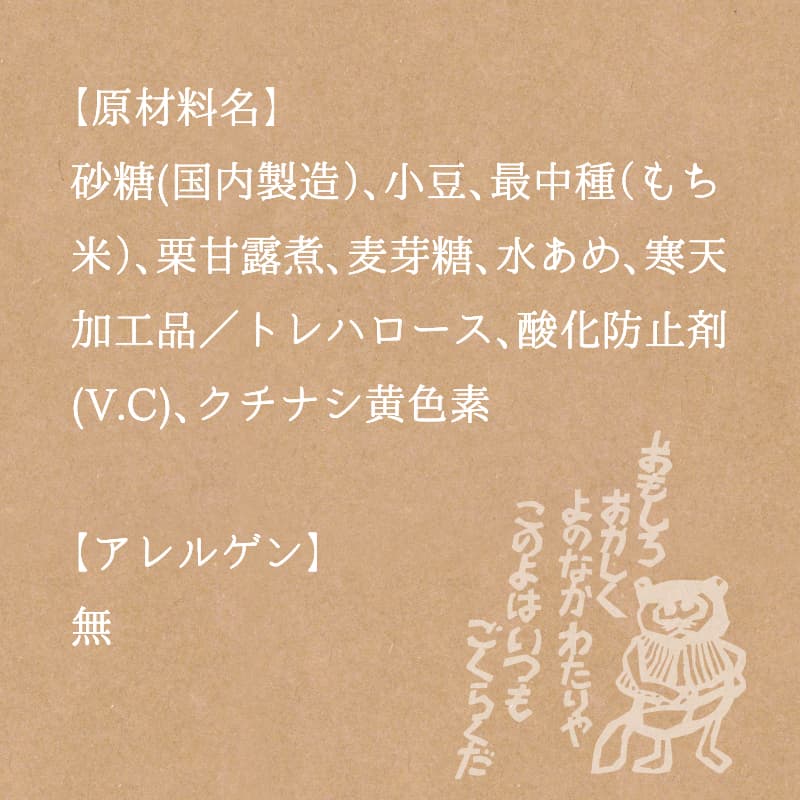 【原材料名】
砂糖(国内製造)、小豆、最中種(もち
米)、栗甘露煮、麦芽糖、水あめ、寒天
加工品／トレハロース、酸化防止剤
(V.C)、クチナシ黄色素
【アレルゲン】
無
おもしろ
おかしく
よのなかわたりゃ
このよはいつも
ごくらくだ